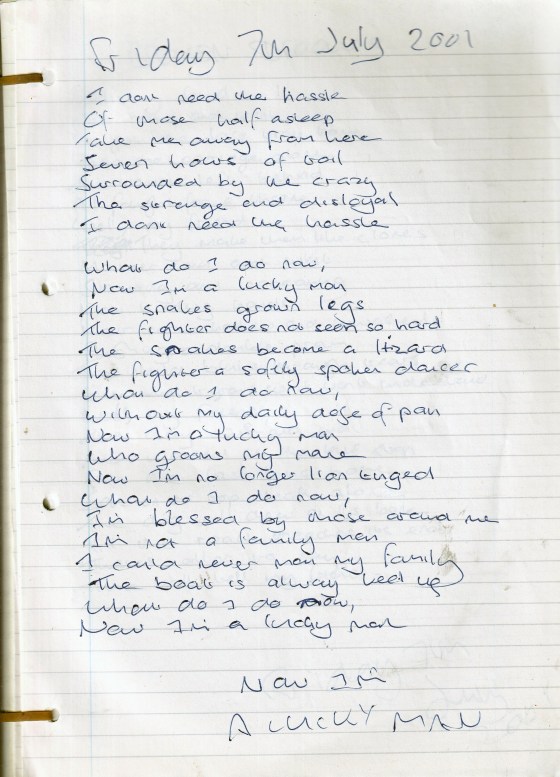 Friday 7th July 2001
I dont need the hassle
Of those half asleep
Take me away from here
Seven hours of toil
Surrounded by the crazy
The strange and disloyal
I dont need the hassle
What do I do now,
Now I'm a lucky man
The snakes grown legs
The fighter does not seem so hard
The snakes become a lizard
The fighter a softly spoken dancer
What do I do now,
Without my daily dose of pain
Now I'm a lucky man
Who grooms my mane
Now I'm no longer lion tinged
What do I do now,
I'm blessed by those around me
I'm not a family man
I could never man my family
The boat is always keel up
What do I do now,
Now I'm a lucky man
Now I'm
A LUCKY MAN